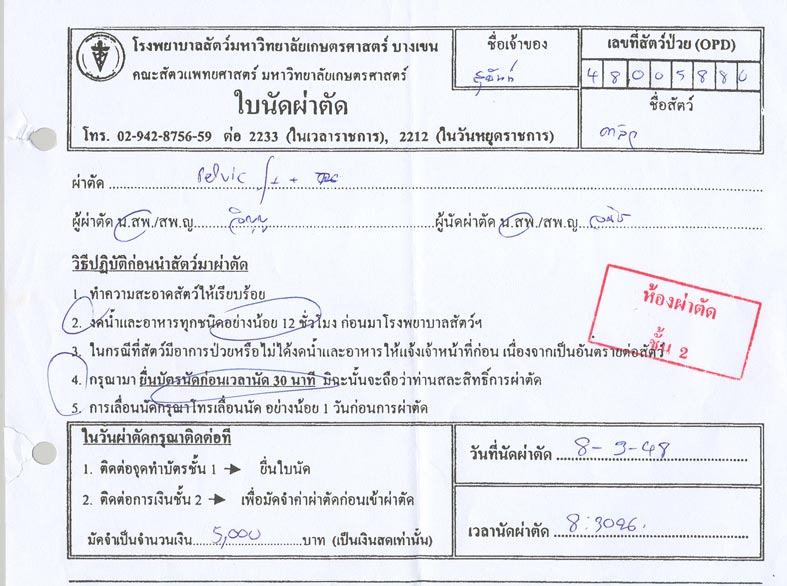 โรงพยาบาลสัตว์มหาวิทยาลัยเกษตรศาสตร์ บางเขน
คณะสัตวแพทยศาสตร์ มหาวิทยาลัยเกษตรศาสตร์
ใบนัดผ่าตัด
โทร. 02-942-8756-59 ต่อ 2233 (ในเวลาราชการ), 2212 (ในวันหยุดราชการ)
ชื่อเจ้าของ
เลขที่สัตว์ป่วย (OPD)
48005880
ชื่อสัตว์
ผ่าตัด pelvic
ผู้ผ่าตัด น.สพ./สพ.ญ. ผู้นัดผ่าตัด น.สพ./สพ.ญ.
วิธีปฏิบัติก่อนนำสัตว์มาผ่าตัด
1. ทำความสะอาดสัตว์ให้เรียบร้อย
2. งดน้ำและอาหารทุกชนิดอย่างน้อย 12 ชั่วโมง ก่อนมาโรงพยาบาลสัตว์ฯ
3. ในกรณีที่สัตว์มีอาการป่วยหรือไม่ได้งดน้ำและอาหารให้แจ้งเจ้าหน้าที่ก่อน เนื่องจากเป็นอันตรายต่อสัตว์
4. กรุณามา ยื่นบัตรนัดก่อนเวลานัด 30 นาที มิฉะนั้นจะถือว่าท่านสละสิทธิ์การผ่าตัด
5. การเลื่อนนัดกรุณาโทรเลื่อนนัด อย่างน้อย 1 วันก่อนการผ่าตัด
ห้องผ่าตัด
ชั้น 2
ในวันผ่าตัดกรุณาติดต่อที่
1. ติดต่อจุดทำบัตรชั้น 1 → ยื่นใบนัด
2. ติดต่อการเงินชั้น 2 → เพื่อมัดจำค่าผ่าตัดก่อนเข้าผ่าตัด
มัดจำเป็นจำนวนเงิน 5,000 บาท (เป็นเงินสดเท่านั้น)
วันที่นัดผ่าตัด 8-3-48
เวลานัดผ่าตัด 8:30 น.